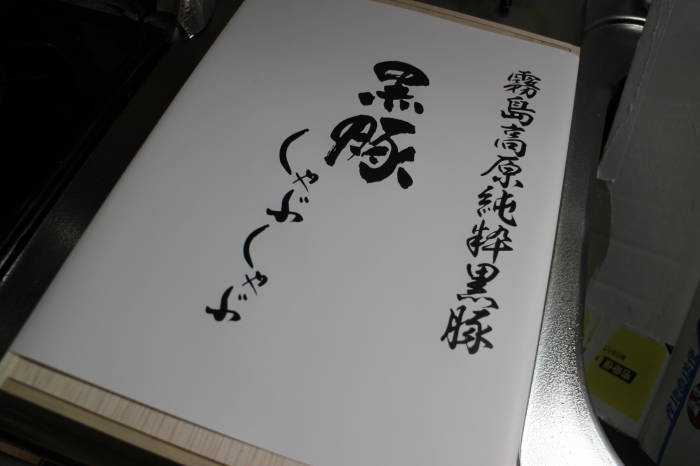 霧島高原純粋黒豚
黒豚
しゃぶしゃぶ